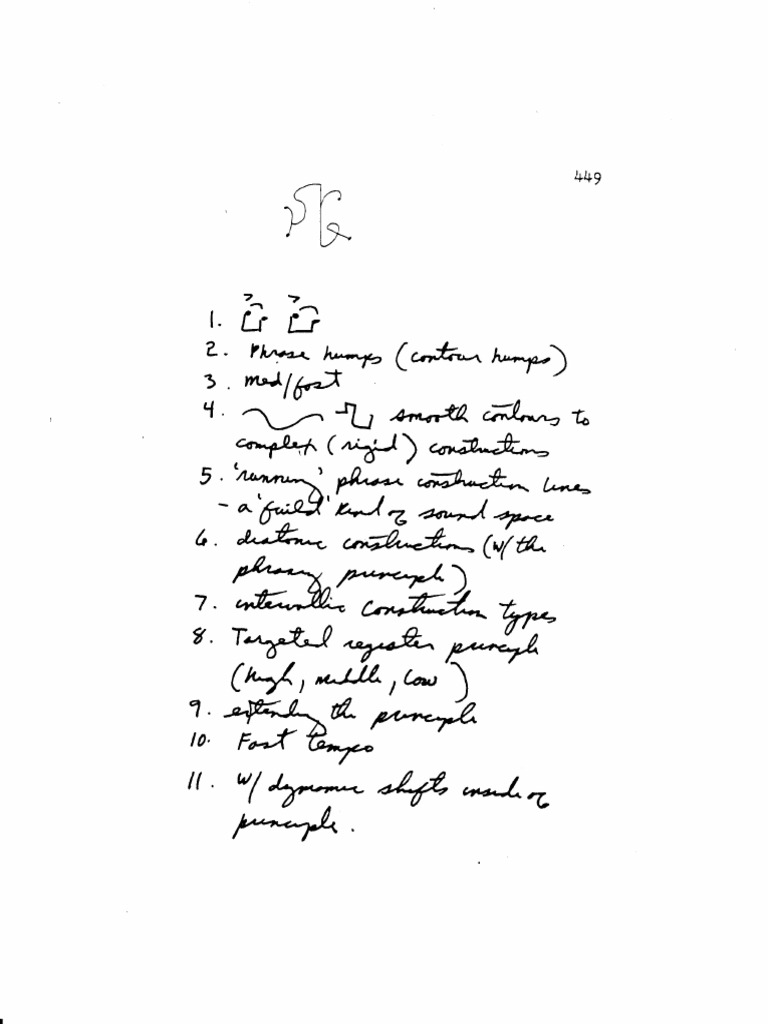 449
1.
2. Phrase humps (contour humps)
3. med/fast
4. smooth contours to
complex (rigid) constructions
5. 'running' phrase construction lines
- a 'field' kind of sound space
6. diatonic constructions (w/ the
phrasing principle)
7. intervallic construction types
8. Targeted register principle
(high, middle, low)
9. extending the principle
10. Fast tempo
11. w/ dynamic shifts inside of
principle.